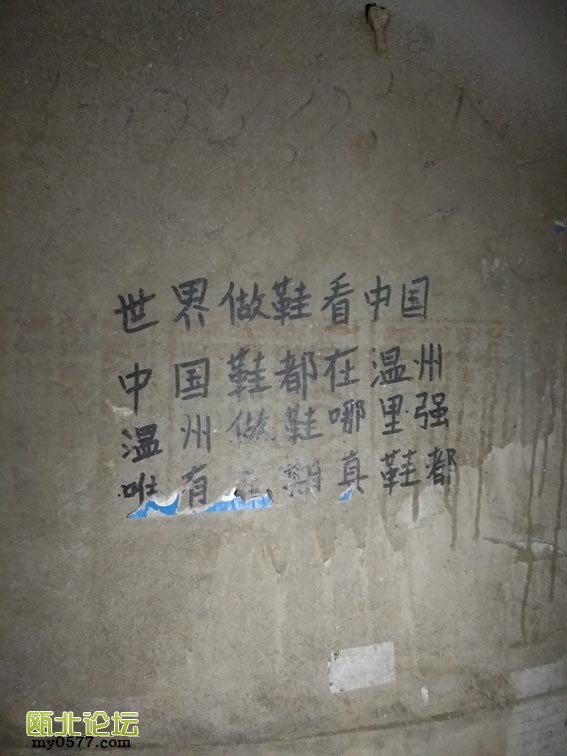 世界做鞋看中国
中国鞋都在温州
温州做鞋哪里强
唯有三期真鞋都
瓯北论坛
my0577.com